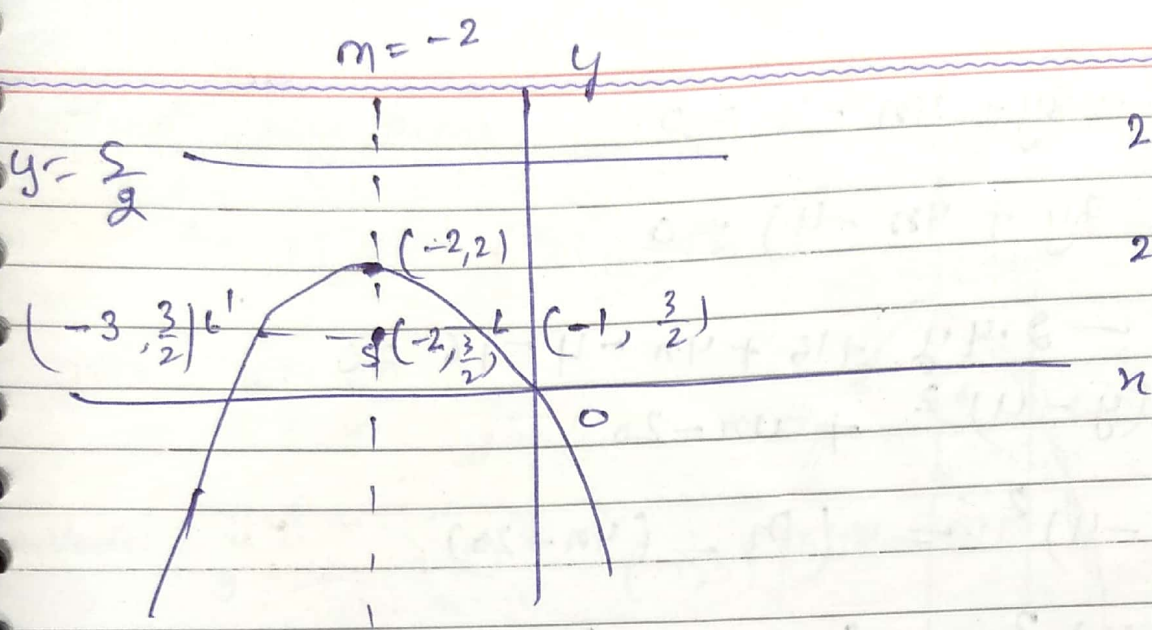 x = -2
y
y = 5/2
2
(-2, 2)
2
(-3, 3/2) L'
S (-2, 3/2)
L (-1, 3/2)
x
O